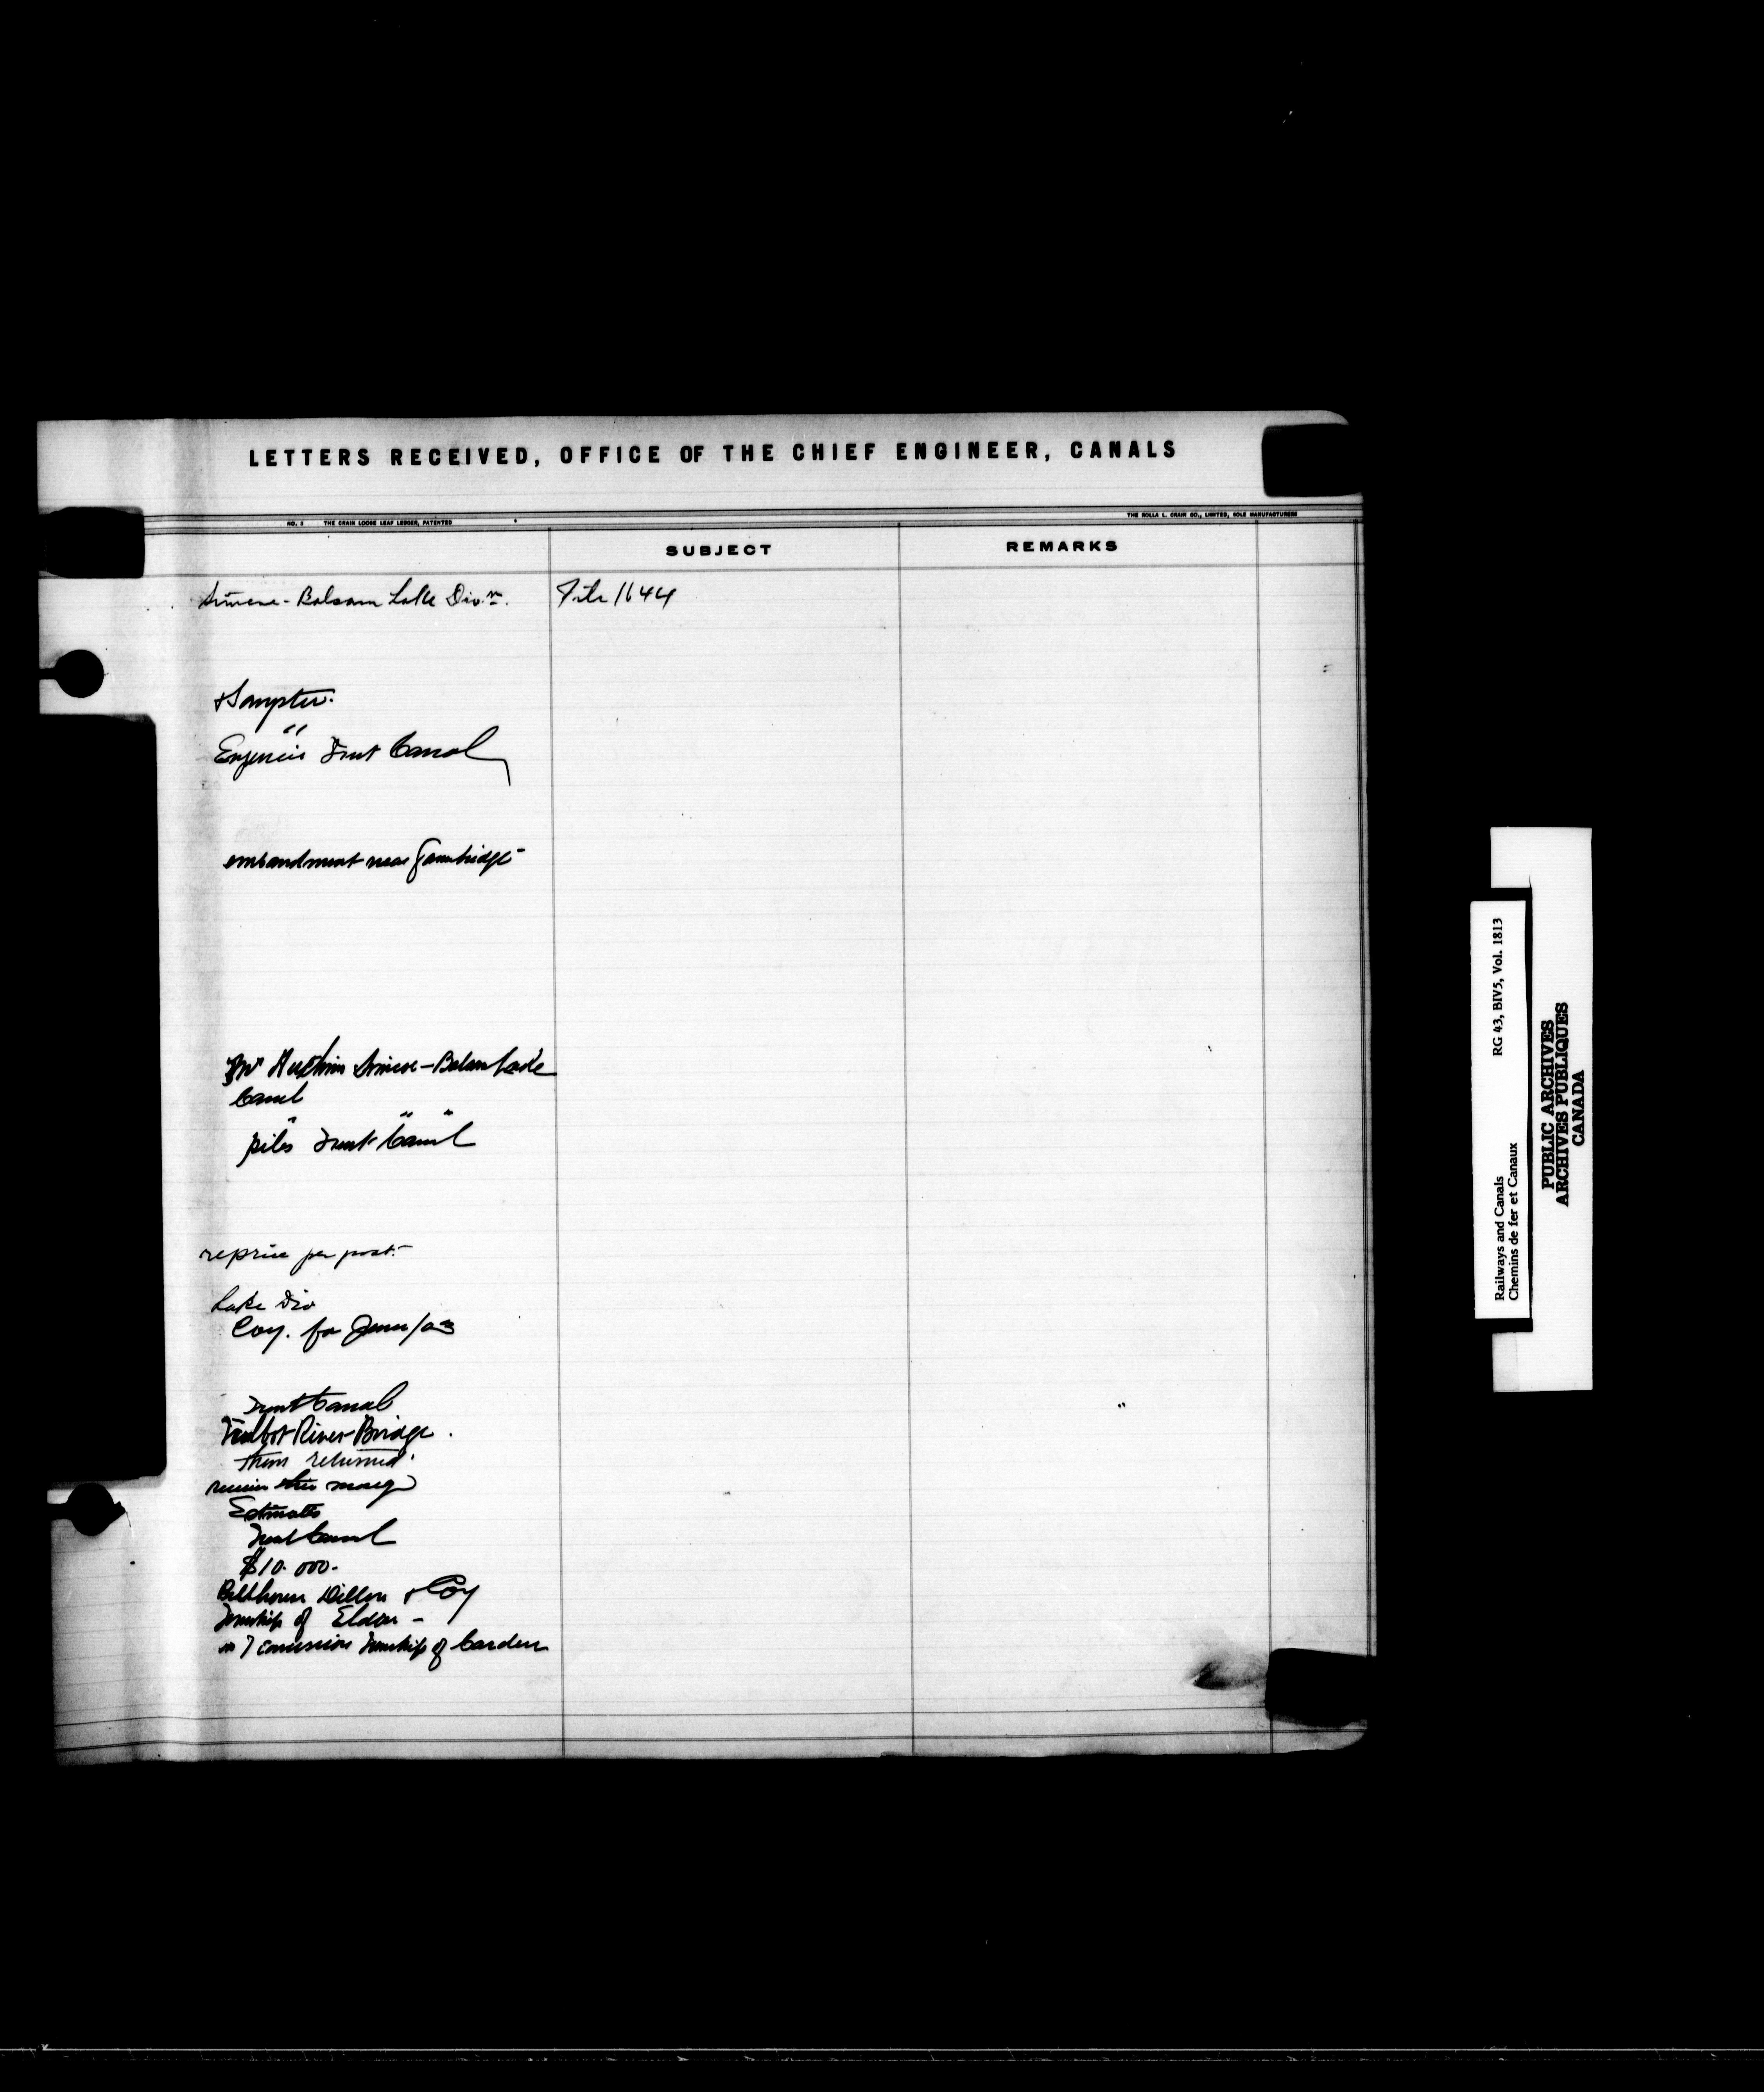 LETTERS RECEIVED, OFFICE OF THE CHIEF ENGINEER, CANALS
NO. 2 THE CRAIN LOOSE LEAF LEDGER, PATENTED
THE ROLLA L. CRAIN CO., LIMITED, SOLE MANUFACTURERS
SUBJECT REMARKS
Simcoe-Balsam Lake Divn. File 1644
" "
Trent Canal
near Gambridge
Mr Simcoe-Balsam Lake
Canal
" " "
piles Trent Canal
reprice per post.
Lake Div
Coy. for June/03
Trent Canal
Talbot River Bridge.
them returned.
Estimates
Trent Canal
$10.000.
Dillon & Coy
Township of Eldon -
in 7 Concession Township of Carden
Railways and Canals RG 43, BIV5, Vol. 1813
Chemins de fer et Canaux
PUBLIC ARCHIVES
ARCHIVES PUBLIQUES
CANADA